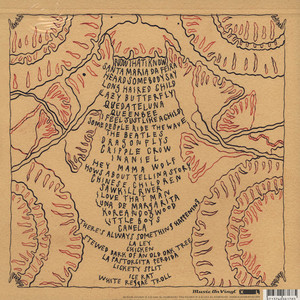 NOW THAT I KNOW
SANTA MARIA DA FEIRA
HEARD SOMEBODY SAY
LONG HAIRED CHILD
LAZY BUTTERFLY
QUEDATE LUNA
QUEEN BEE
I FEEL JUST LIKE A CHILD
SOME PEOPLE RIDE THE WAVE
THE BEATLES
DRAGONFLYS
CRIPPLE CROW
INANIEL
HEY MAMA WOLF
HOWS ABOUT TELLIN A STORY
CHINESE CHILDREN
SAWKILL RIVER
I LOVE THAT MAN
LUNA DE MARGARITA
KOREAN DOGWOOD
LITTLE BOYS
CANELA
HERE'S ALWAYS SOMETHING HAPPENING
LA LEY
CHICKEN
STEWED BARK OF AN OLD OAK TREE
LA PASTORCITA PERDIDA
LICKETY SPLIT
ICE RAT
WHITE REGGAE TROLL
Music On Vinyl